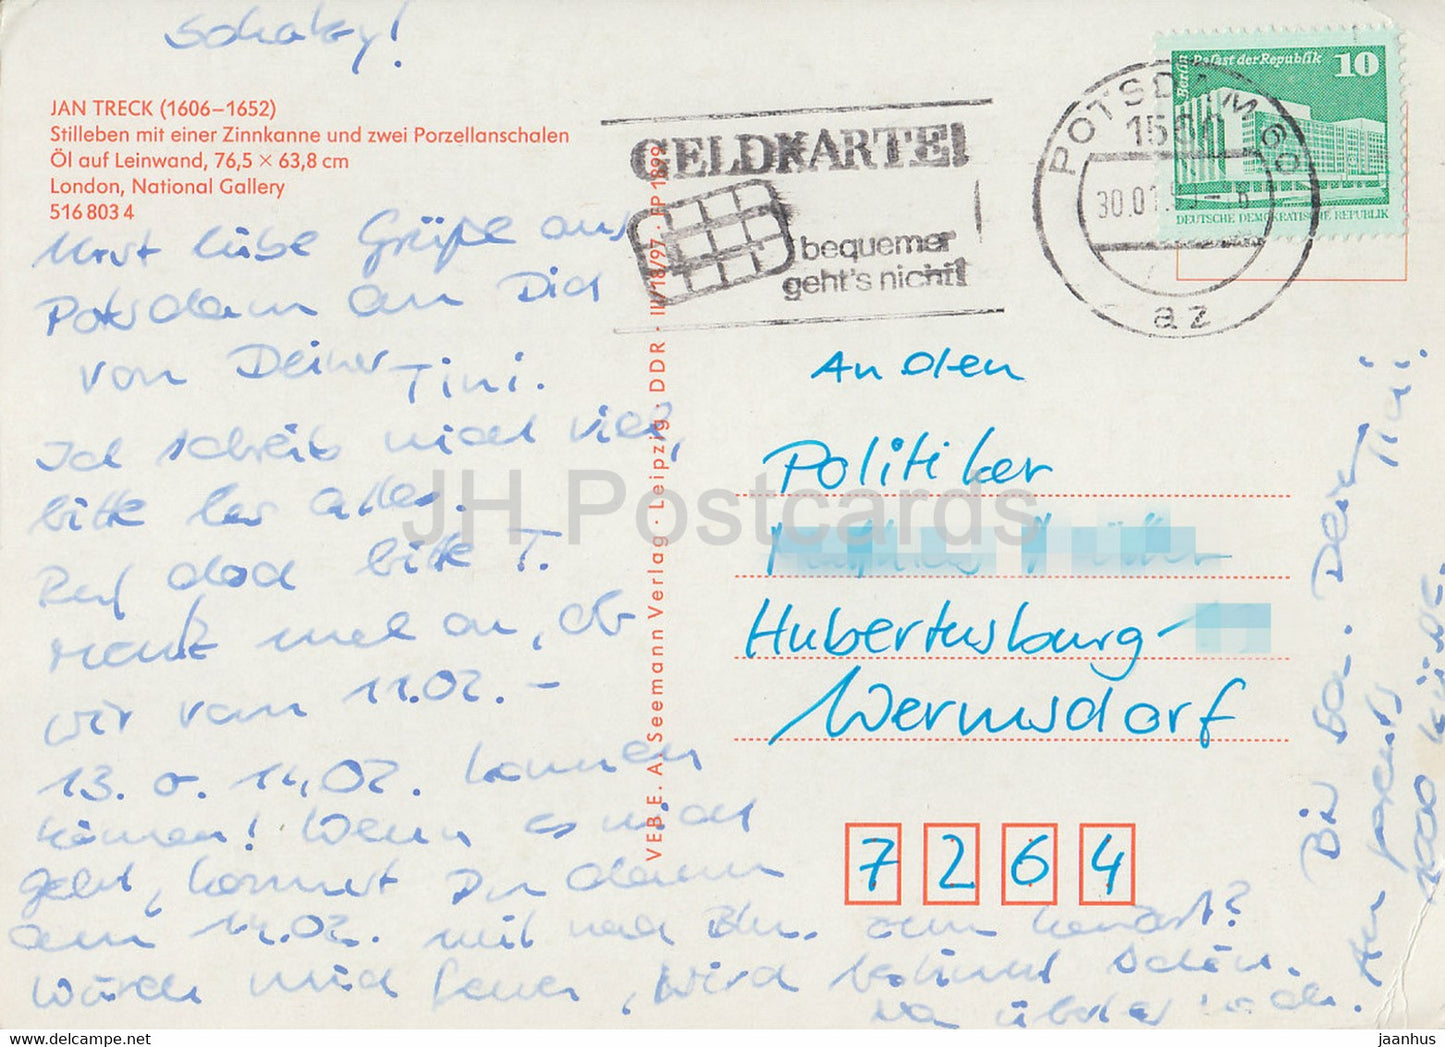 Schatzy!
JAN TRECK (1606–1652)
Stilleben mit einer Zinnkanne und zwei Porzellanschalen
Öl auf Leinwand, 76,5 × 63,8 cm
London, National Gallery
516 803 4
liebe Grüße aus
Potsdam an Dich
von Deiner Tini.
Ich schreib nicht viel,
bitte les alles.
Ruf doch bitte T.
mal an, ob
wir vom 11.02. –
13. o. 14.02. kommen
können! Wenn es nicht
geht, kommst Du dann
am 14.02. mit nach Bln. zum
Würde mich freuen, wird bestimmt schön.
VEB E. A. Seemann Verlag · Leipzig · DDR · III/18/97 · FP 1899
GELDKARTE!
bequemer
geht's nicht!
POTSDAM 60
1560
30.01.9
az
Berlin Palast der Republik 10
DEUTSCHE DEMOKRATISCHE REPUBLIK
An den
Politiker
Hubertusburg-
Wermsdorf
7264
Deine Tini!
1000 Küsse
JH Postcards
jaanhus
www.delcampe.net